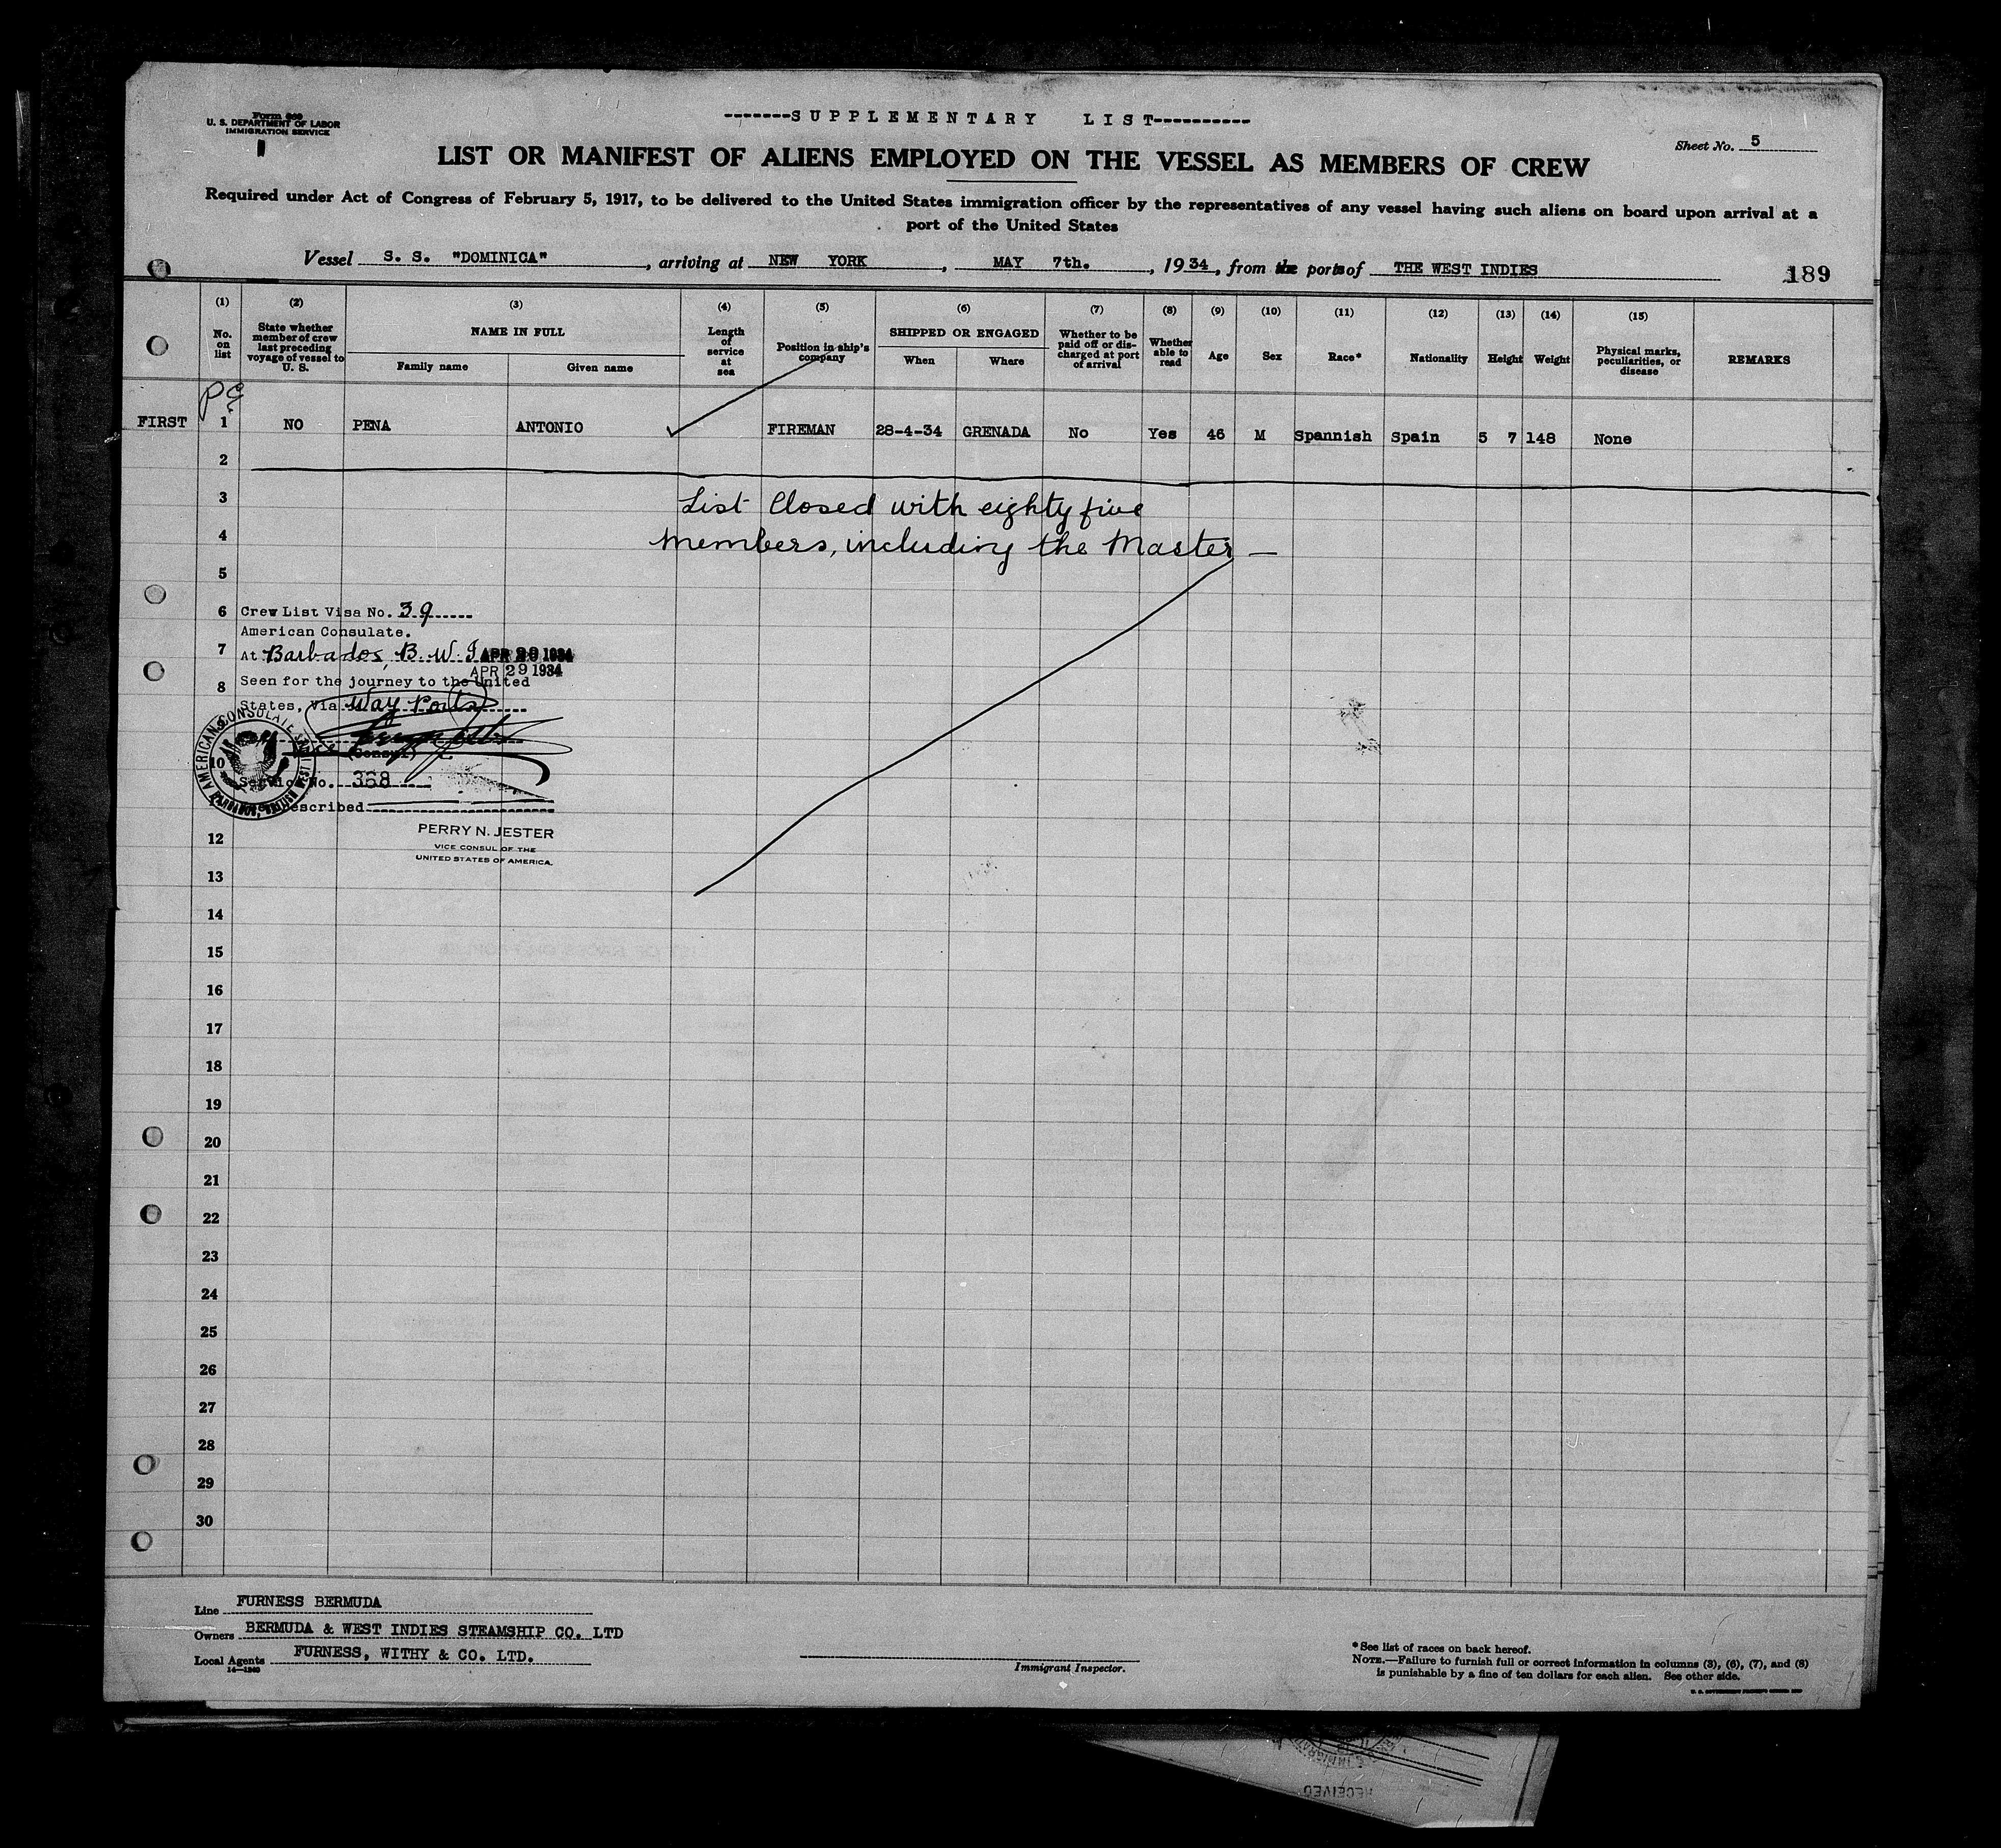 -------SUPPLEMENTARY LIST----------
U. S. DEPARTMENT OF LABOR
IMMIGRATION SERVICE
Sheet No. 5
LIST OR MANIFEST OF ALIENS EMPLOYED ON THE VESSEL AS MEMBERS OF CREW
Required under Act of Congress of February 5, 1917, to be delivered to the United States immigration officer by the representatives of any vessel having such aliens on board upon arrival at a
port of the United States
Vessel S. S. "DOMINICA", arriving at NEW YORK, MAY 7th., 1934, from the ports of THE WEST INDIES
189
(1) (2) (3) (4) (5) (6) (7) (8) (9) (10) (11) (12) (13) (14) (15)
No. on list State whether member of crew last preceding voyage of vessel to U. S. NAME IN FULL Length of service at sea Position in ship's company SHIPPED OR ENGAGED Whether to be paid off or discharged at port of arrival Whether able to read Age Sex Race* Nationality Height Weight Physical marks, peculiarities, or disease REMARKS
Family name Given name When Where
FIRST 1 NO PENA ANTONIO FIREMAN 28-4-34 GRENADA No Yes 46 M Spannish Spain 5 7 148 None
2
3 List Closed with eighty five
4 members, including the Master —
5
6 Crew List Visa No. 39
American Consulate.
7 At Barbados, B. W. I APR 29 1934
APR 29 1934
8 Seen for the journey to the United
States, Via Way Ports
10 (Consul)
Service No. 368
AMERICAN CONSULATE
PERRY N. JESTER
12 VICE CONSUL OF THE
UNITED STATES OF AMERICA.
13
14
15
16
17
18
19
20
21
22
23
24
25
26
27
28
29
30
Line FURNESS BERMUDA
Owners BERMUDA & WEST INDIES STEAMSHIP CO. LTD
Local Agents FURNESS, WITHY & CO. LTD.
Immigrant Inspector.
*See list of races on back hereof.
NOTE.—Failure to furnish full or correct information in columns (3), (6), (7), and (8)
is punishable by a fine of ten dollars for each alien. See other side.
RECEIVED